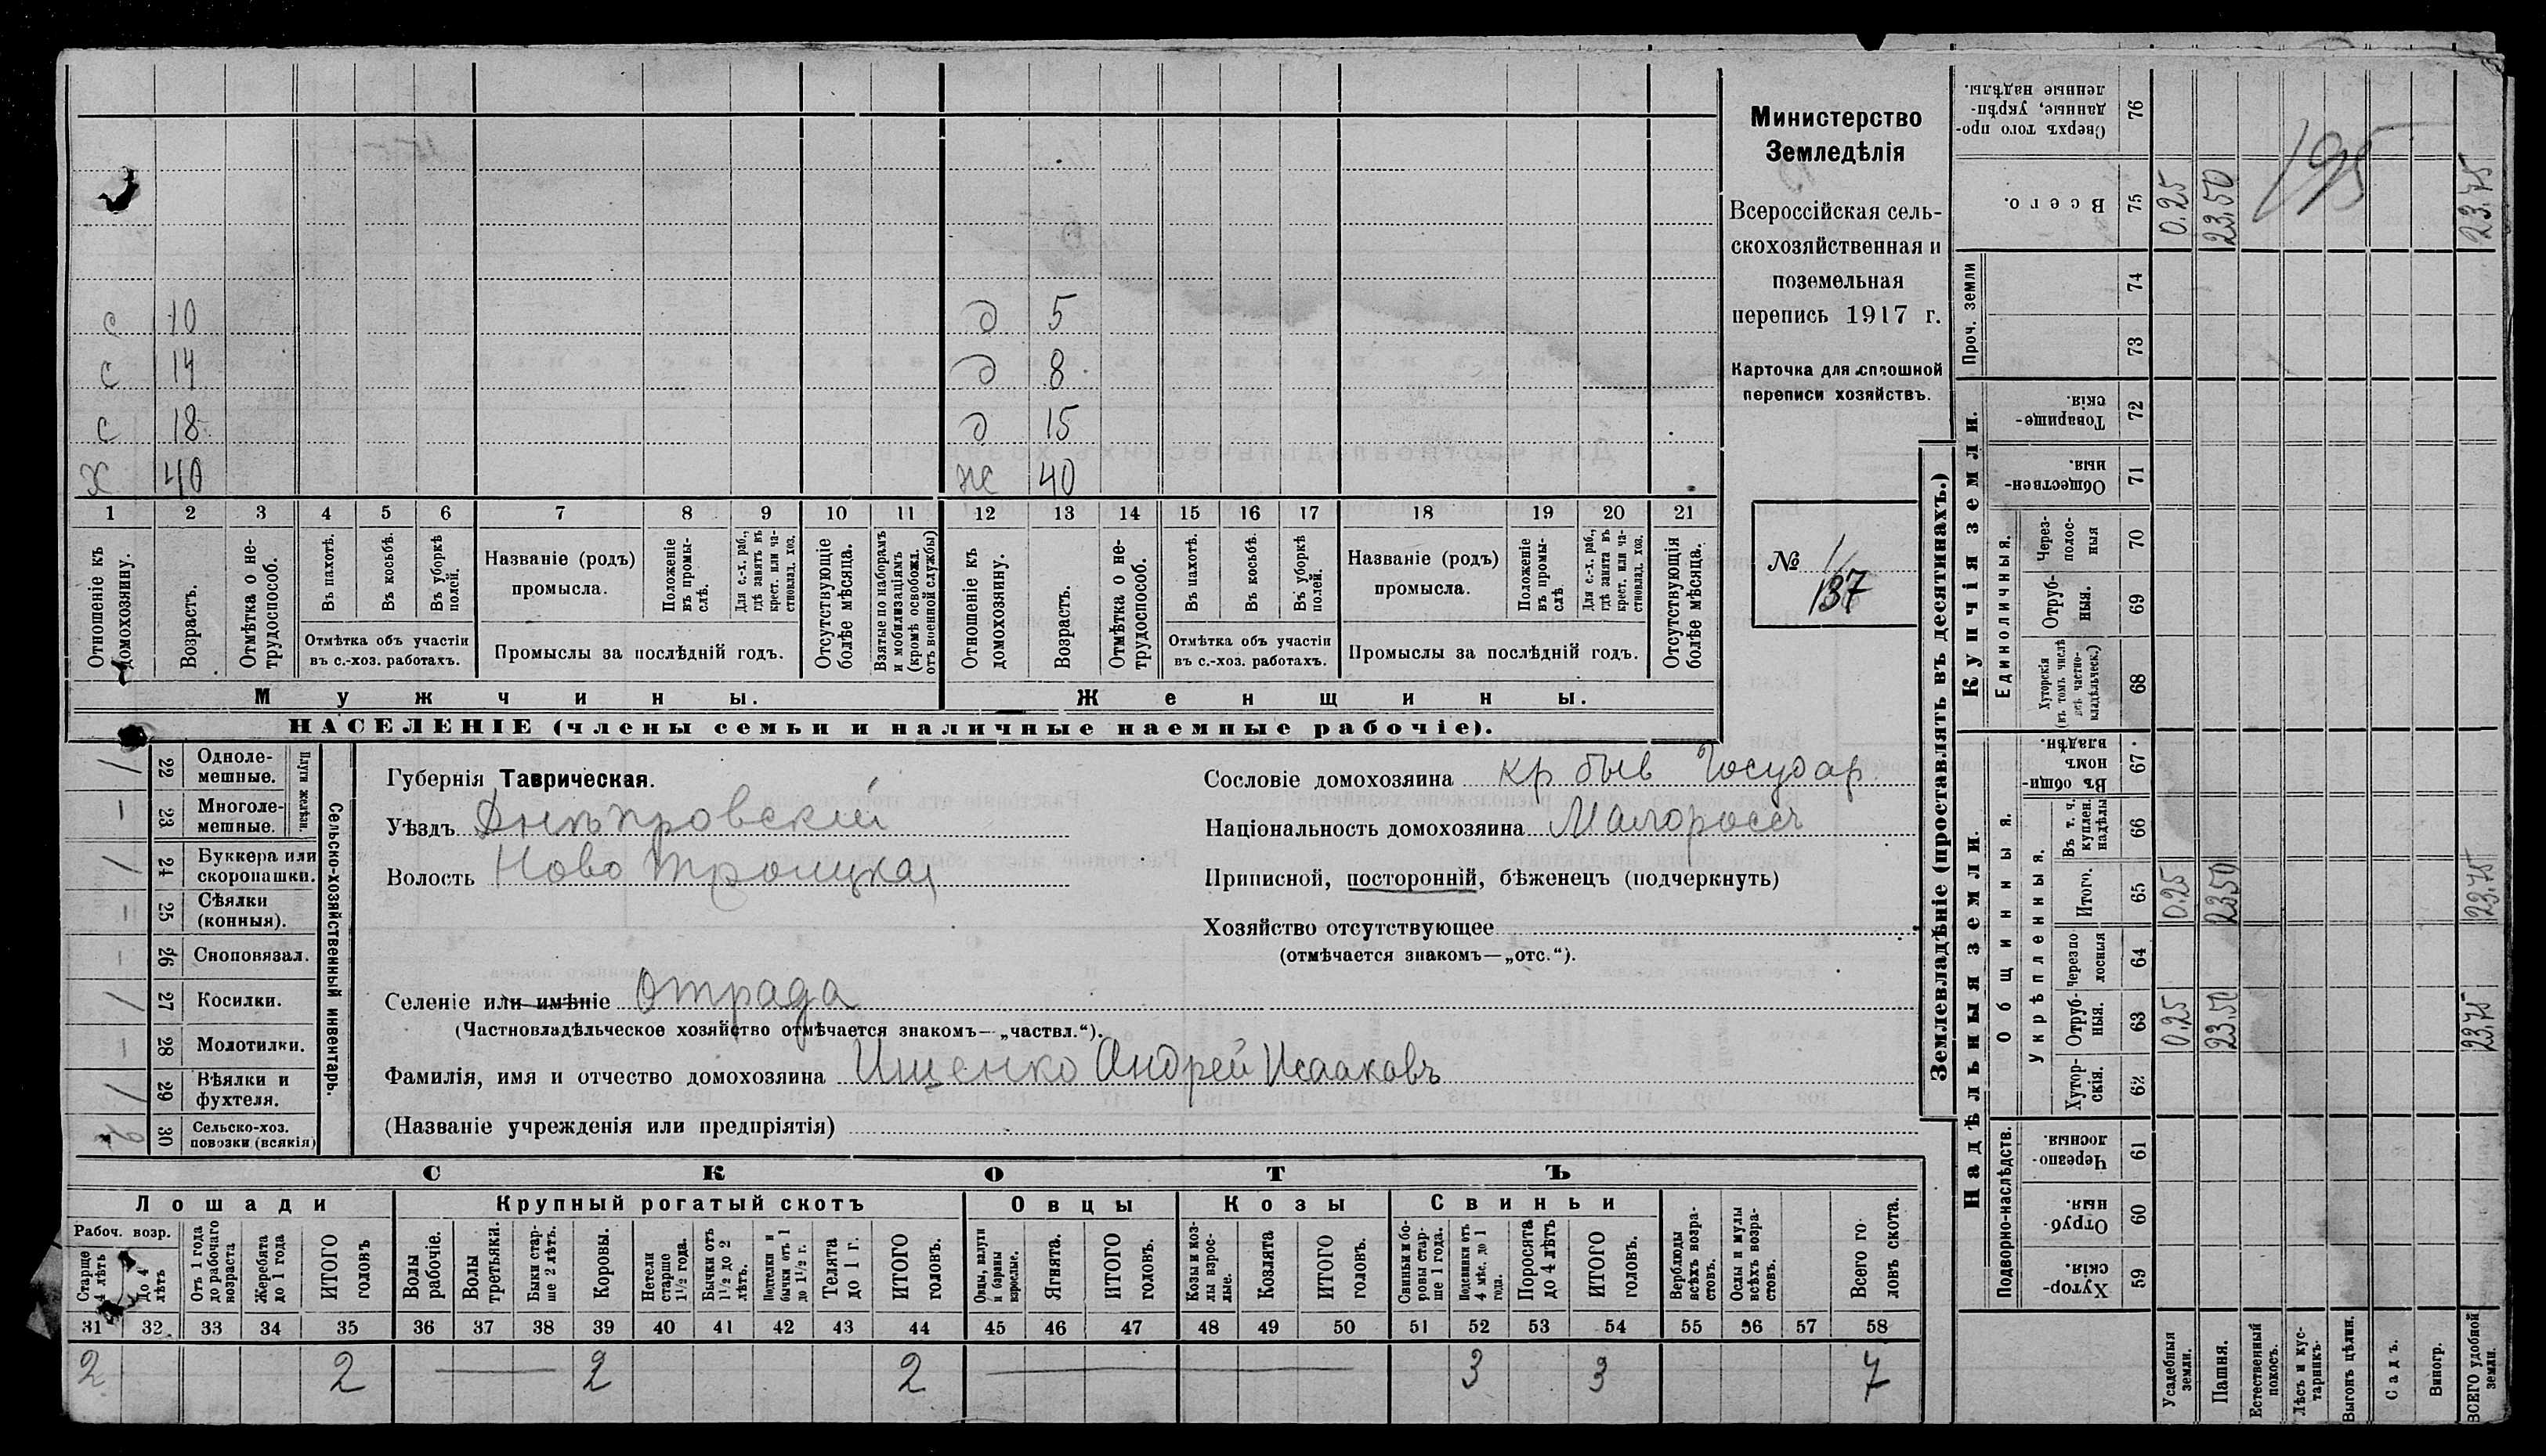 с 10 д 5
с 14 д 8
с 18 д 15
х 40 ж 40
1 2 3 4 5 6 7 8 9 10 11 12 13 14 15 16 17 18 19 20 21
Отношеніе къ домохозяину.
Возрастъ.
Отмѣтка о не-
трудоспособ.
Въ пахотѣ.
Въ косьбѣ.
Въ уборкѣ
полей.
Отмѣтка объ участіи
въ с.-хоз. работахъ.
Названіе (родъ)
промысла.
Положеніе
въ промы-
слѣ.
Для с.-х. раб.,
гдѣ занятъ въ
крест. или ча-
стновлад. хоз.
Промыслы за послѣдній годъ.
Отсутствующіе
болѣе мѣсяца.
Взятые по наборамъ
и мобилизаціямъ
(кромѣ освобожд.
отъ военной службы)
Отношеніе къ
домохозяину.
Возрастъ.
Отмѣтка о не-
трудоспособ.
Въ пахотѣ.
Въ косьбѣ.
Въ уборкѣ
полей.
Отмѣтка объ участіи
въ с.-хоз. работахъ.
Названіе (родъ)
промысла.
Положеніе
въ промы-
слѣ.
Для с.-х. раб.,
гдѣ занята въ
крест. или ча-
стновлад. хоз.
Промыслы за послѣдній годъ.
Отсутствующія
болѣе мѣсяца.
Мужчины.
Женщины.
НАСЕЛЕНІЕ (члены семьи и наличные наемные рабочіе).
Министерство
Земледѣлія
Всероссійская сель-
скохозяйственная и
поземельная
перепись 1917 г.
Карточка для сплошной
переписи хозяйствъ.
№ 1/
137
Сельско-хозяйственный инвентарь.
Плуги желѣзн.
/ 22 Одноле-
мешные.
— 23 Многоле-
мешные.
/ 24 Буккера или
скоропашки.
— 25 Сѣялки
(конныя).
— 26 Сноповязал.
/ 27 Косилки.
— 28 Молотилки.
/ 29 Вѣялки и
фухтеля.
2 30 Сельско-хоз.
повозки (всякія)
Губернія Таврическая.
Уѣздъ Днѣпровскій
Волость Ново Троицкая
Селеніе или имѣніе Отрада
(Частновладѣльческое хозяйство отмѣчается знакомъ— „частвл.“).
Фамилія, имя и отчество домохозяина Ищенко Андрей Исааковъ
(Названіе учрежденія или предпріятія)
Сословіе домохозяина кр быв Государ.
Національность домохозяина Малороссъ
Приписной, посторонній, бѣженецъ (подчеркнуть)
Хозяйство отсутствующее
(отмѣчается знакомъ—„отс.“).
СКОТЪ
Лошади
Рабоч. возр.
Старше
4 лѣтъ
До 4
лѣтъ
Отъ 1 года
до рабочаго
возраста
Жеребята
до 1 года
ИТОГО
головъ
Крупный рогатый скотъ
Волы
рабочіе.
Волы
третьяки.
Быки стар-
ше 2 лѣтъ.
Коровы.
Нетели
старше
1½ года.
Бычки отъ
1½ до 2
лѣтъ.
Подтелки и
бычки отъ 1
до 1½ г.
Телята
до 1 г.
ИТОГО
головъ.
Овцы
Овцы, валухи
и бараны
взрослые.
Ягнята.
ИТОГО
головъ.
Козы
Козы и коз-
лы взрос-
лые.
Козлята
ИТОГО
головъ.
Свиньи
Свиньи и бо-
ровы стар-
ше 1 года.
Подсвинки отъ
4 мѣс. до 1
года.
Поросята
до 4 лѣтъ
ИТОГО
головъ.
Верблюды
всѣхъ возра-
стовъ.
Ослы и мулы
всѣхъ возра-
стовъ.
Всего го-
ловъ скота.
31 32 33 34 35 36 37 38 39 40 41 42 43 44 45 46 47 48 49 50 51 52 53 54 55 56 57 58
2 2 — 2 2 — 3 3 7
Землевладѣніе (проставлять въ десятинахъ.)
Купчія земли.
Надѣльныя земли.
Сверхъ того про-
данные, укрѣп-
ленные надѣлы. 76
Всего. 75 0.25 23.50 23.75
195
Проч. земли
74
73
Товарище-
скія. 72
Обществен-
ныя. 71
Единоличныя.
Через-
полос-
ныя 70
Отруб-
ныя. 69
Хуторскія
(въ томъ числѣ
всѣ частно-
владѣльческ.) 68
Общинныя.
Въ общин-
номъ
владѣн. 67
Укрѣпленныя.
Въ т. ч.
куплен.
надѣлы 66
Итого. 65 0.25 23.50 23.75
Черезпо
лосныя 64
Отруб-
ныя. 63 0.25 23.50 23.75
Хутор-
скія. 62
Подворно-наслѣдств.
Черезпо-
лосныя. 61
Отруб-
ныя. 60
Хутор-
скія. 59
Усадебныя
земли.
Пашня.
Естественный
покосъ.
Лѣсъ и кус-
тарникъ.
Выгонъ цѣлин.
Садъ.
Виногр.
ВСЕГО удобной
земли.